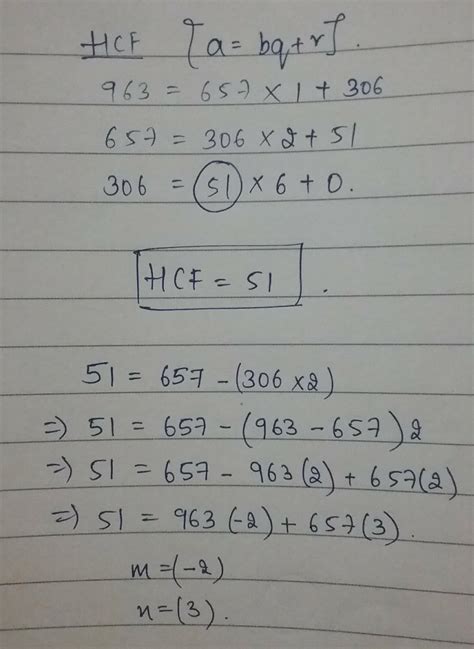 HCF [a = bq + r].
963 = 657 × 1 + 306
657 = 306 × 2 + 51
306 = 51 × 6 + 0.
HCF = 51 .
51 = 657 - (306 × 2)
⇒ 51 = 657 - (963 - 657) 2
⇒ 51 = 657 - 963 (2) + 657 (2)
⇒ 51 = 963 (-2) + 657 (3) .
m = (-2)
n = (3) .